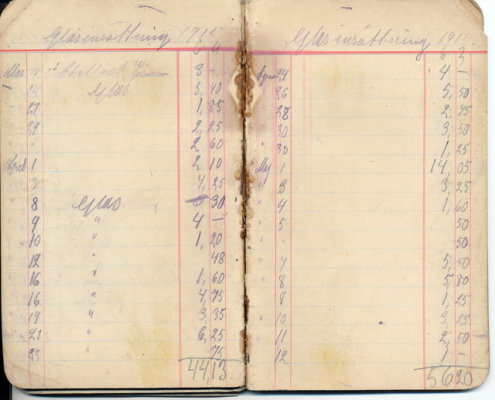 Glasinsättning 1915
Mars
3 -
Glas 5, 40
27 1, 85
28 2, 25
2 60
April 1 2 10
4, 25
8 Glas 30
9 " 4 -
10 " 1, 20
12 " 48
16 " 1, 60
16 " 4, 75
19 " 3, 35
21 " 6, 25
23 75
44,13
Glasinsättning 191
April 24 4 -
26 5, 50
28 2, 75
30 3, 50
30 1, 25
Maj 1 14, 05
3 3, 25
4 1, 60
5 50
50
7 5, 50
8 5, 80
8 1, 25
10 3, 75
11 2, 50
12 1 -
56 20